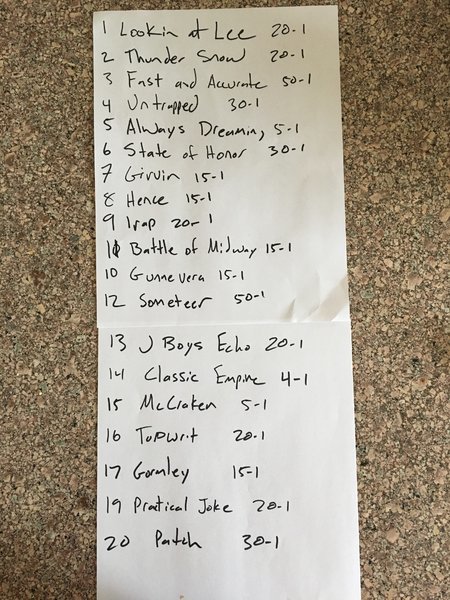 1 Lookin at Lee 20-1
2 Thunder Snow 20-1
3 Fast and Accurate 50-1
4 Untrapped 30-1
5 Always Dreaming 5-1
6 State of Honor 30-1
7 Girvin 15-1
8 Hence 15-1
9 Irap 20-1
11 Battle of Midway 15-1
10 Gunnevera 15-1
12 Someteer 50-1
13 J Boys Echo 20-1
14 Classic Empire 4-1
15 McCraken 5-1
16 Topwrit 20-1
17 Gormley 15-1
19 Pratical Joke 20-1
20 Patch 30-1